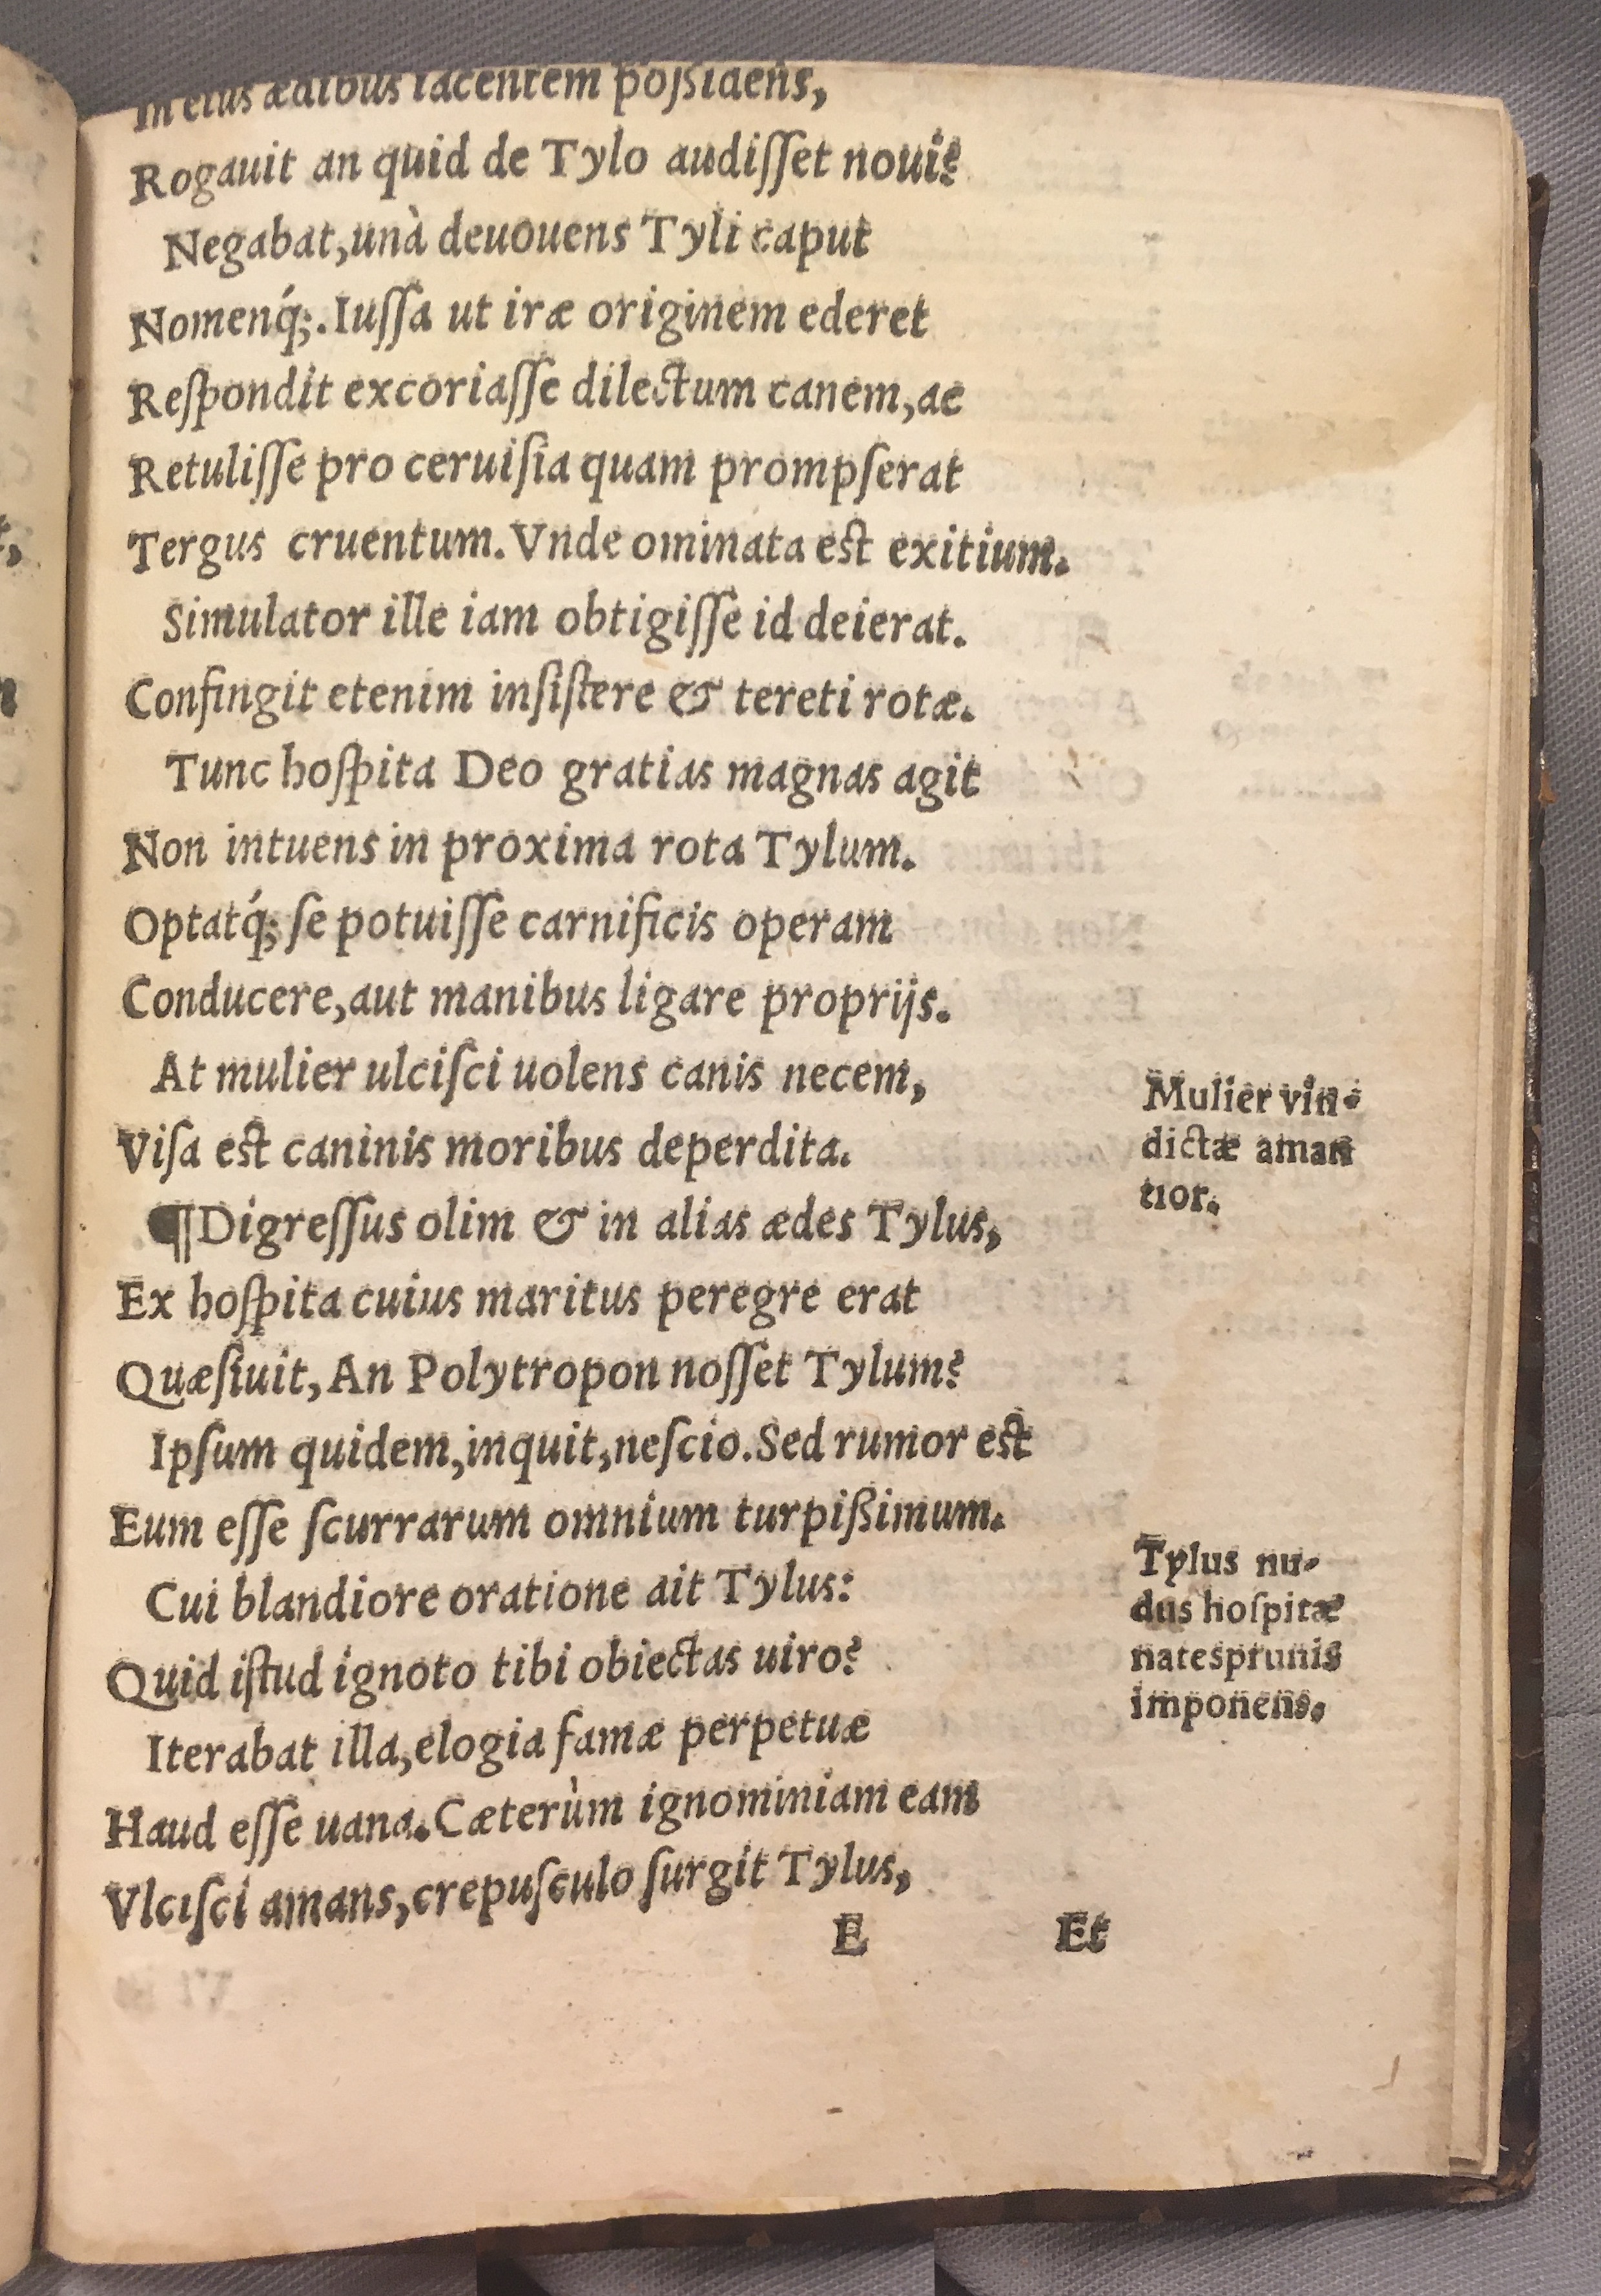 In eius ædibus iacentem poßidens,
Rogauit an quid de Tylo audiſſet noui?
Negabat, unà deuouens Tyli caput
Nomenq́;. Iuſſa ut iræ originem ederet
Reſpondit excoriaſſe dilectum canem, ac
Retuliſſe pro ceruiſia quam prompſerat
Tergus cruentum. Vnde ominata est exitium.
Simulator ille iam obtigiſſe id deierat.
Confingit etenim inſiſtere & tereti rotæ.
Tunc hoſpita Deo gratias magnas agit
Non intuens in proxima rota Tylum.
Optatq́; ſe potuiſſe carnificis operam
Conducere, aut manibus ligare proprijs.
At mulier ulciſci uolens canis necem,
Viſa est caninis moribus deperdita.
¶ Digreſſus olim & in alias ædes Tylus,
Ex hoſpita cuius maritus peregre erat
Quæſiuit, An Polytropon noſſet Tylum?
Ipſum quidem, inquit, neſcio. Sed rumor est
Eum eſſe ſcurrarum omnium turpißimum.
Cui blandiore oratione ait Tylus:
Quid iſtud ignoto tibi obiectas uiro?
Iterabat illa, elogia famæ perpetuæ
Haud eſſe uana. Cæterùm ignominiam eam
Vlciſci amans, crepuſculo ſurgit Tylus,
E Et
Mulier vin-
dictæ aman
tior.
Tylus nu-
dus hoſpitæ
nates prunis
imponens.